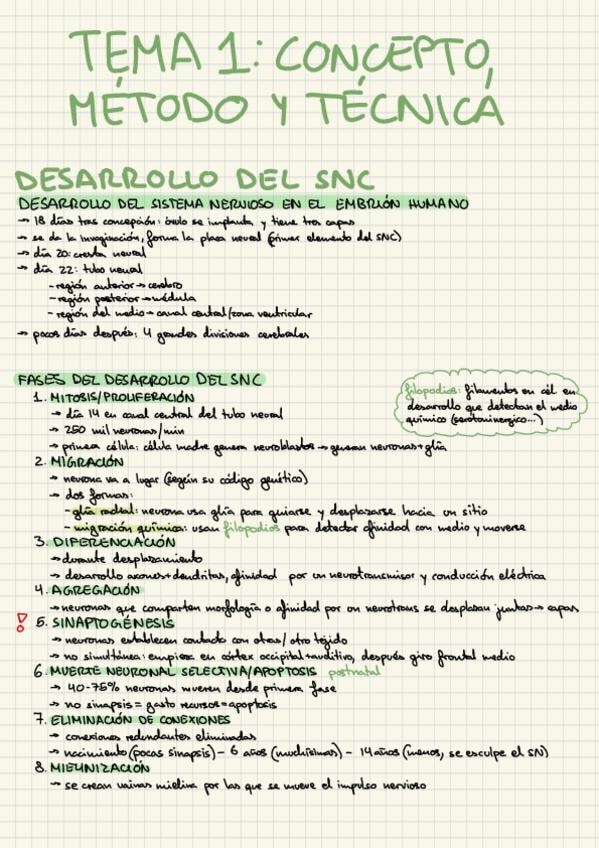 TEMA 1: CONCEPTO,
MÉTODO Y TÉCNICA
DESARROLLO DEL SNC
DESARROLLO DEL SISTEMA NERVIOSO EN EL EMBRIÓN HUMANO
→ 18 días tras concepción: óvulo se implanta y tiene tres capas
→ se da la invaginación, forma la placa neural (primer elemento del SNC)
→ día 20: cresta neural
→ día 22: tubo neural
- región anterior → cerebro
- región posterior → médula
- región del medio → canal central/zona ventricular
→ pocos días después: 4 grandes divisiones cerebrales
FASES DEL DESARROLLO DEL SNC
filopodios: filamentos en cél en
desarrollo que detectan el medio
químico (serotoninérgico...)
1. MITOSIS/PROLIFERACIÓN
→ día 14 en canal central del tubo neural
→ 250 mil neuronas/min
→ primera célula: célula madre genera neuroblastos → generan neuronas+glía
2. MIGRACIÓN
→ neurona va a lugar (según su código genético)
→ dos formas:
- glía radial: neurona usa glía para guiarse y desplazarse hacia un sitio
- migración química: usan filopodios para detectar afinidad con medio y moverse
3. DIFERENCIACIÓN
→ durante desplazamiento
→ desarrollo axones+dendritas, afinidad por un neurotransmisor y conducción eléctrica
4. AGREGACIÓN
→ neuronas que comparten morfología o afinidad por un neurotrans se desplazan juntas → capas
5. SINAPTOGÉNESIS
→ neuronas establecen contacto con otras/otro tejido
→ no simultánea: empieza en córtex occipital+auditivo, después giro frontal medio
6. MUERTE NEURONAL SELECTIVA/APOPTOSIS postnatal
→ 40-75% neuronas mueren desde primera fase
→ no sinapsis = gasto recursos = apoptosis
7. ELIMINACIÓN DE CONEXIONES
→ conexiones redundantes eliminadas
→ nacimiento (pocas sinapsis) - 6 años (muchísimas) - 14 años (menos, se esculpe el SN)
8. MIELINIZACIÓN
→ se crean vainas mielina por las que se mueve el impulso nervioso